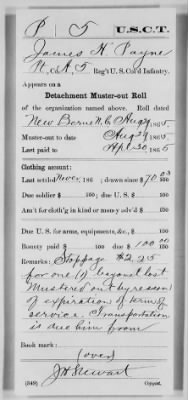 P | 5 | U.S.C.T.
James H Payne
Pt, Co. A, 5 Reg't U.S. Col'd Infantry.
Appears on a
Detachment Muster-out Roll
of the organization named above. Roll dated
New Berne N.C. Aug 24, 1865.
Muster-out to date Aug 24, 1865.
Last paid to Apl 30, 1865.
Clothing account:
Last settled Never, 186 ; drawn since $ 70 03/100
Due soldier $ 100; due U.S. $ 100
Am't for cloth'g in kind or money adv'd $ 100
Due U.S. for arms, equipments, &c., $ 100
Bounty paid $ 100; due $ 100 00/100
Remarks: Stoppage $2.25
for one (1) bayonet lost
Mustered out by reason
of expiration of term of
service. Transportation
is due him from
Book mark:
(over)
J H Stewart
(349) Copyist.